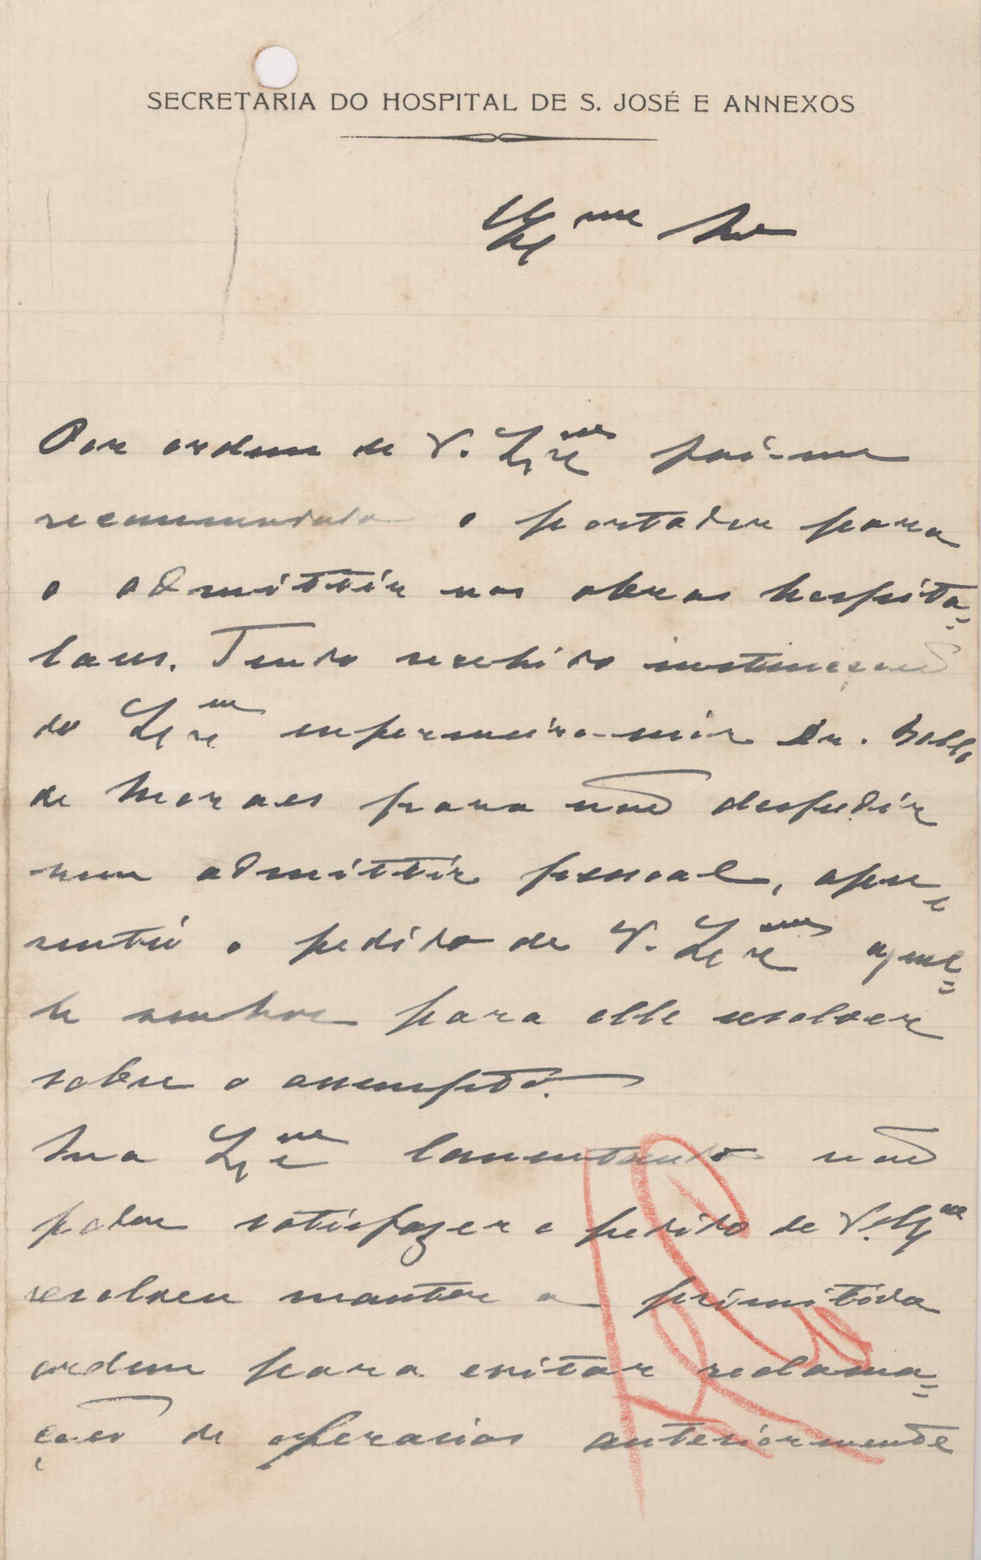 SECRETARIA DO HOSPITAL DE S. JOSÉ E ANNEXOS
Exmo Snr
Por ordem de V. Exa foi-me
recommendado o portador para
o admittir nas obras hospita=
lares. Tendo recebido instrucções
do Exmo enfermeiro-mór Dr.
de Moraes para não despedir
nem admittir pessoal, apre=
sentei o pedido de V. Exa aquel=
le senhor para elle resolver
sobre o assumpto.
Sua Exa lamentando não
poder satisfazer o pedido de V. Exa
resolveu manter a primitiva
ordem para evitar reclama=
ções de operarios anteriormente